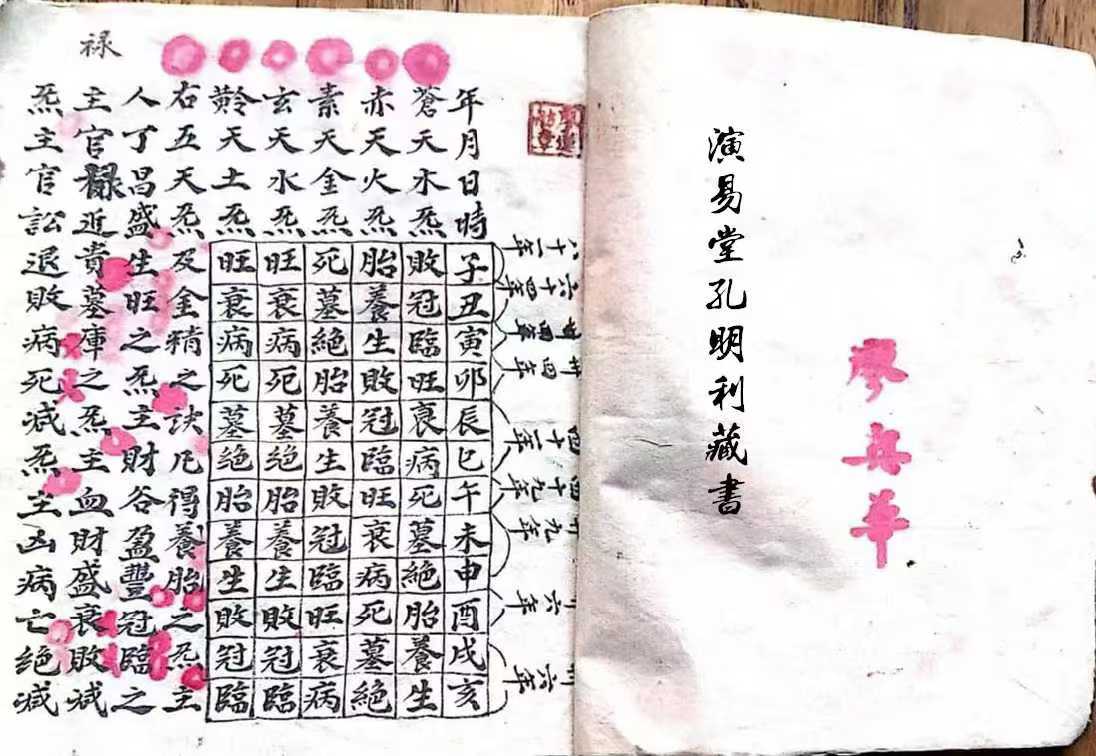 廖
華
演易堂孔明利藏書
八十一年
六十四年
卅四年
四十一年
四十九年
十九年
十六年
卅六年
年月日時子丑寅卯辰巳午未申酉戌亥
蒼天木炁敗冠臨旺衰病死墓絶胎養生
赤天火炁胎養生敗冠臨旺衰病死墓絶
素天金炁死墓絶胎養生敗冠臨旺衰病
玄天水炁旺衰病死墓絶胎養生敗冠臨
黅天土炁旺衰病死墓絶胎養生敗冠臨
右五天炁及金精之訣凡得養胎之炁主
人丁昌盛生旺之炁主財谷盈豐冠臨之
禄
主官祿近貴墓庫之炁主血財盛衰敗减
炁主官訟退敗病死减炁主凶病亡絶减